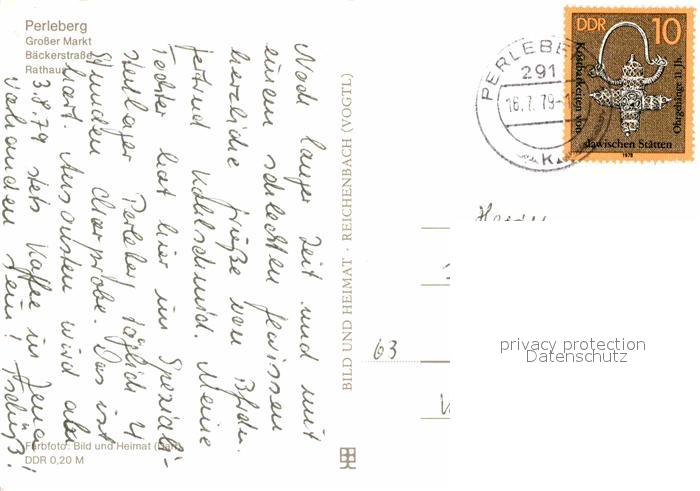 Perleberg
Großer Markt
Bäckerstraße
Rathaus
Nach langer Zeit und mit
einem schlechten Gewissen
herzliche Grüße von Bfdn.
Kohlschmid. Meine
Tochter hat hier im Spezial-
Perleberg täglich 4
Stunden Chorprobe. Das ist
hart. Ansonsten wird ab
3.8.79 stets Kaffee in Jena
vorhanden sein! Tschüß!
Farbfoto: Bild und Heimat
DDR 0,20 M
BILD UND HEIMAT · REICHENBACH (VOGTL)
PERLEBERG
291
16.7.79-1
K
DDR 10
Kostbarkeiten von
slawischen Stätten
Ohrgehänge 11. Jh.
1978
63
privacy protection
Datenschutz